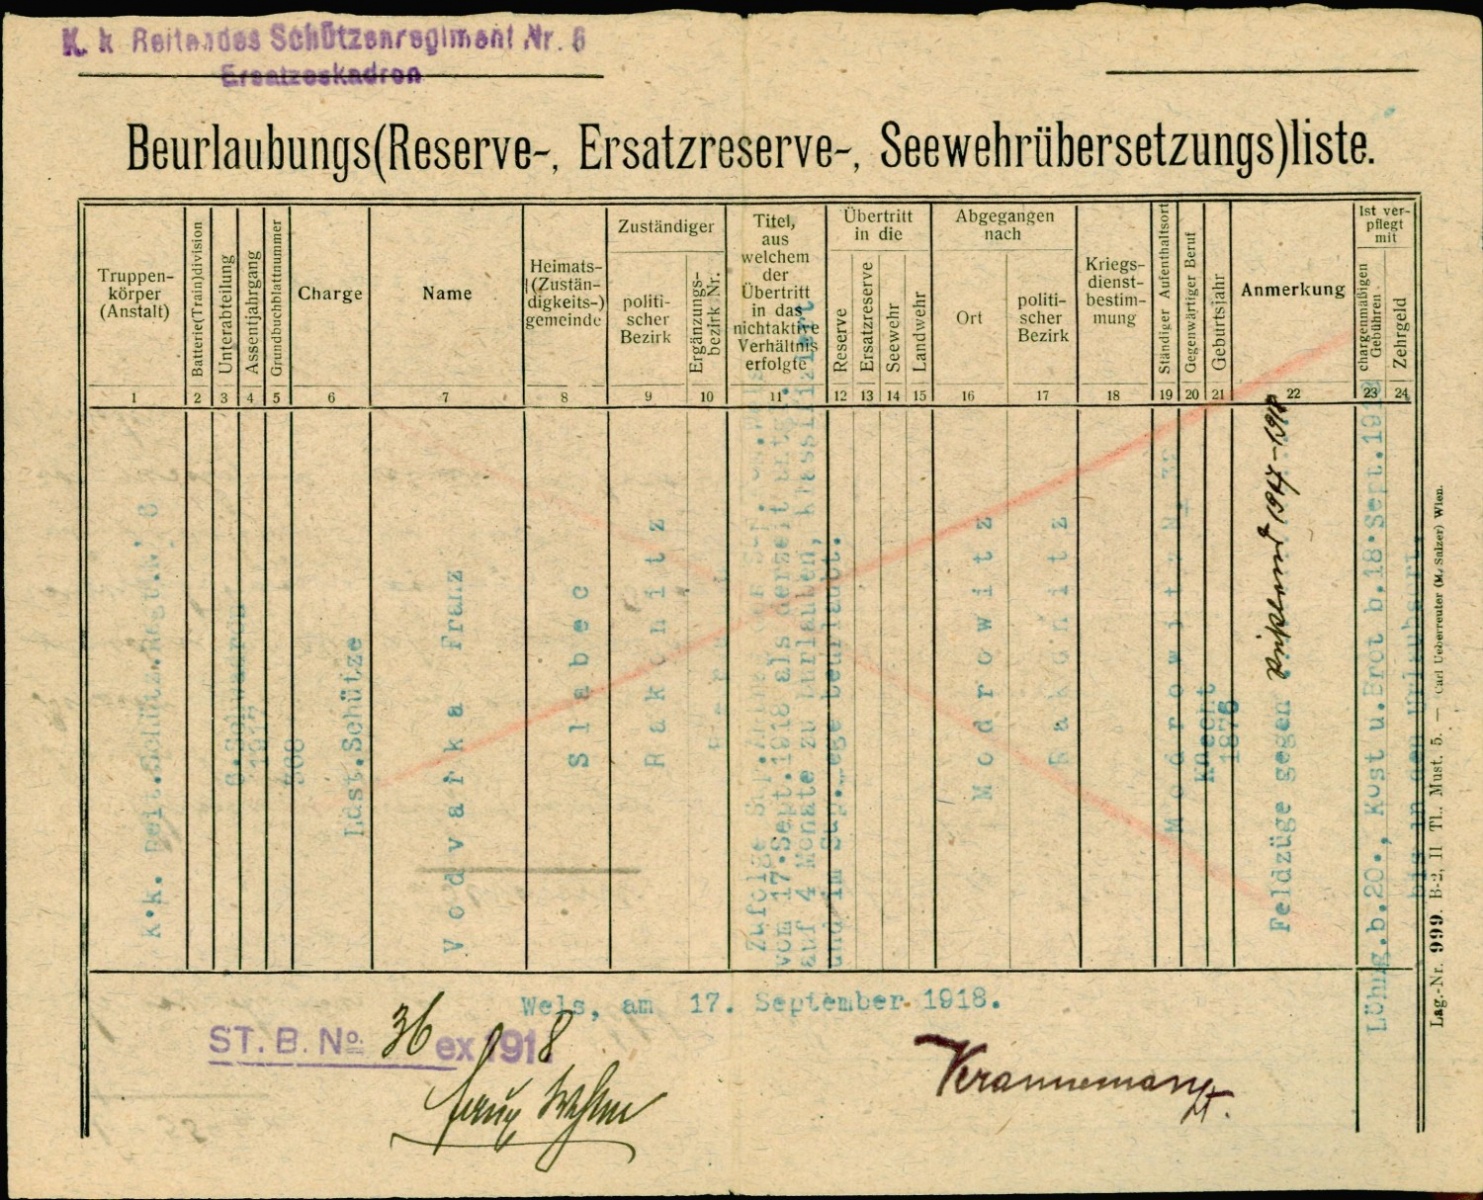 K. k Reitendes Schützenregiment Nr. 6
Ersatzeskadron
Beurlaubungs(Reserve-, Ersatzreserve-, Seewehrübersetzungs)liste.
Truppen-
körper
(Anstalt)
Batterie(Train)division
Unterabteilung
Assentjahrgang
Grundbuchblattnummer
Charge
Name
Heimats-
(Zustän-
digkeits-)
gemeinde
Zuständiger
politi-
scher
Bezirk
Ergänzungs-
bezirk Nr.
Titel,
aus
welchem
der
Übertritt
in das
nichtaktive
Verhältnis
erfolgte
Übertritt
in die
Reserve
Ersatzreserve
Seewehr
Landwehr
Abgegangen
nach
Ort
politi-
scher
Bezirk
Kriegs-
dienst-
bestim-
mung
Ständiger Aufenthaltsort
Gegenwärtiger Beruf
Geburtsjahr
Anmerkung
Ist ver-
pflegt
mit
chargenmäßigen
Gebühren
Zehrgeld
1 2 3 4 5 6 7 8 9 10 11 12 13 14 15 16 17 18 19 20 21 22 23 24
K.k. Reit.Schütz.Regt.Nr 6
Ldst.Schütze
Vodvarka Franz
Slabec
Rakonitz
Zufolge
vom 17.Sept.1918 als derzeit
auf 4 Monate zu beurlauben, klassifiziert
und im beurlaubt.
Modrowitz
Rakonitz
Modrowitz
Knecht
1876
Feldzüge gegen Russland 1917-1918
Löhng.b.20., Kost u.Brot b.18.Sept.1918
bis in den Urlaubsort.
Wels, am 17. September 1918.
ST. B. No. 36 ex 1918
Lag.-Nr. 999. B-2, II Tl. Must. 5. — Carl Ueberreuter (M. Salzer) Wien.